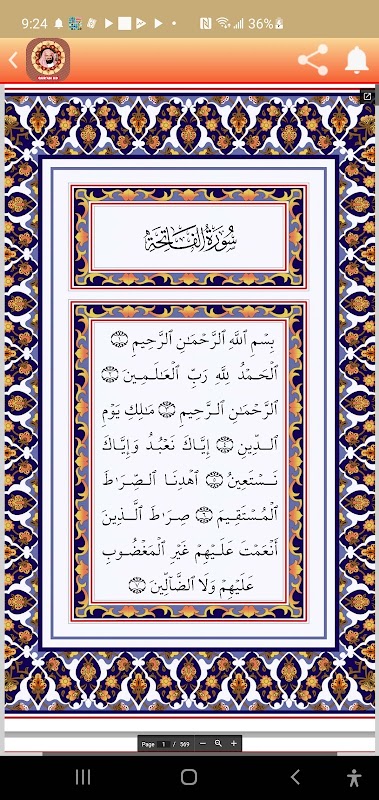 9:24
36%
سُورَةُ الْفَاتِحَةِ
بِسْمِ ٱللَّهِ ٱلرَّحْمَٰنِ ٱلرَّحِيمِ ١
ٱلْحَمْدُ لِلَّهِ رَبِّ ٱلْعَٰلَمِينَ ٢
ٱلرَّحْمَٰنِ ٱلرَّحِيمِ ٣ مَٰلِكِ يَوْمِ
ٱلدِّينِ ٤ إِيَّاكَ نَعْبُدُ وَإِيَّاكَ
نَسْتَعِينُ ٥ ٱهْدِنَا ٱلصِّرَٰطَ
ٱلْمُسْتَقِيمَ ٦ صِرَٰطَ ٱلَّذِينَ
أَنْعَمْتَ عَلَيْهِمْ غَيْرِ ٱلْمَغْضُوبِ
عَلَيْهِمْ وَلَا ٱلضَّآلِّينَ ٧
Page 1 / 569